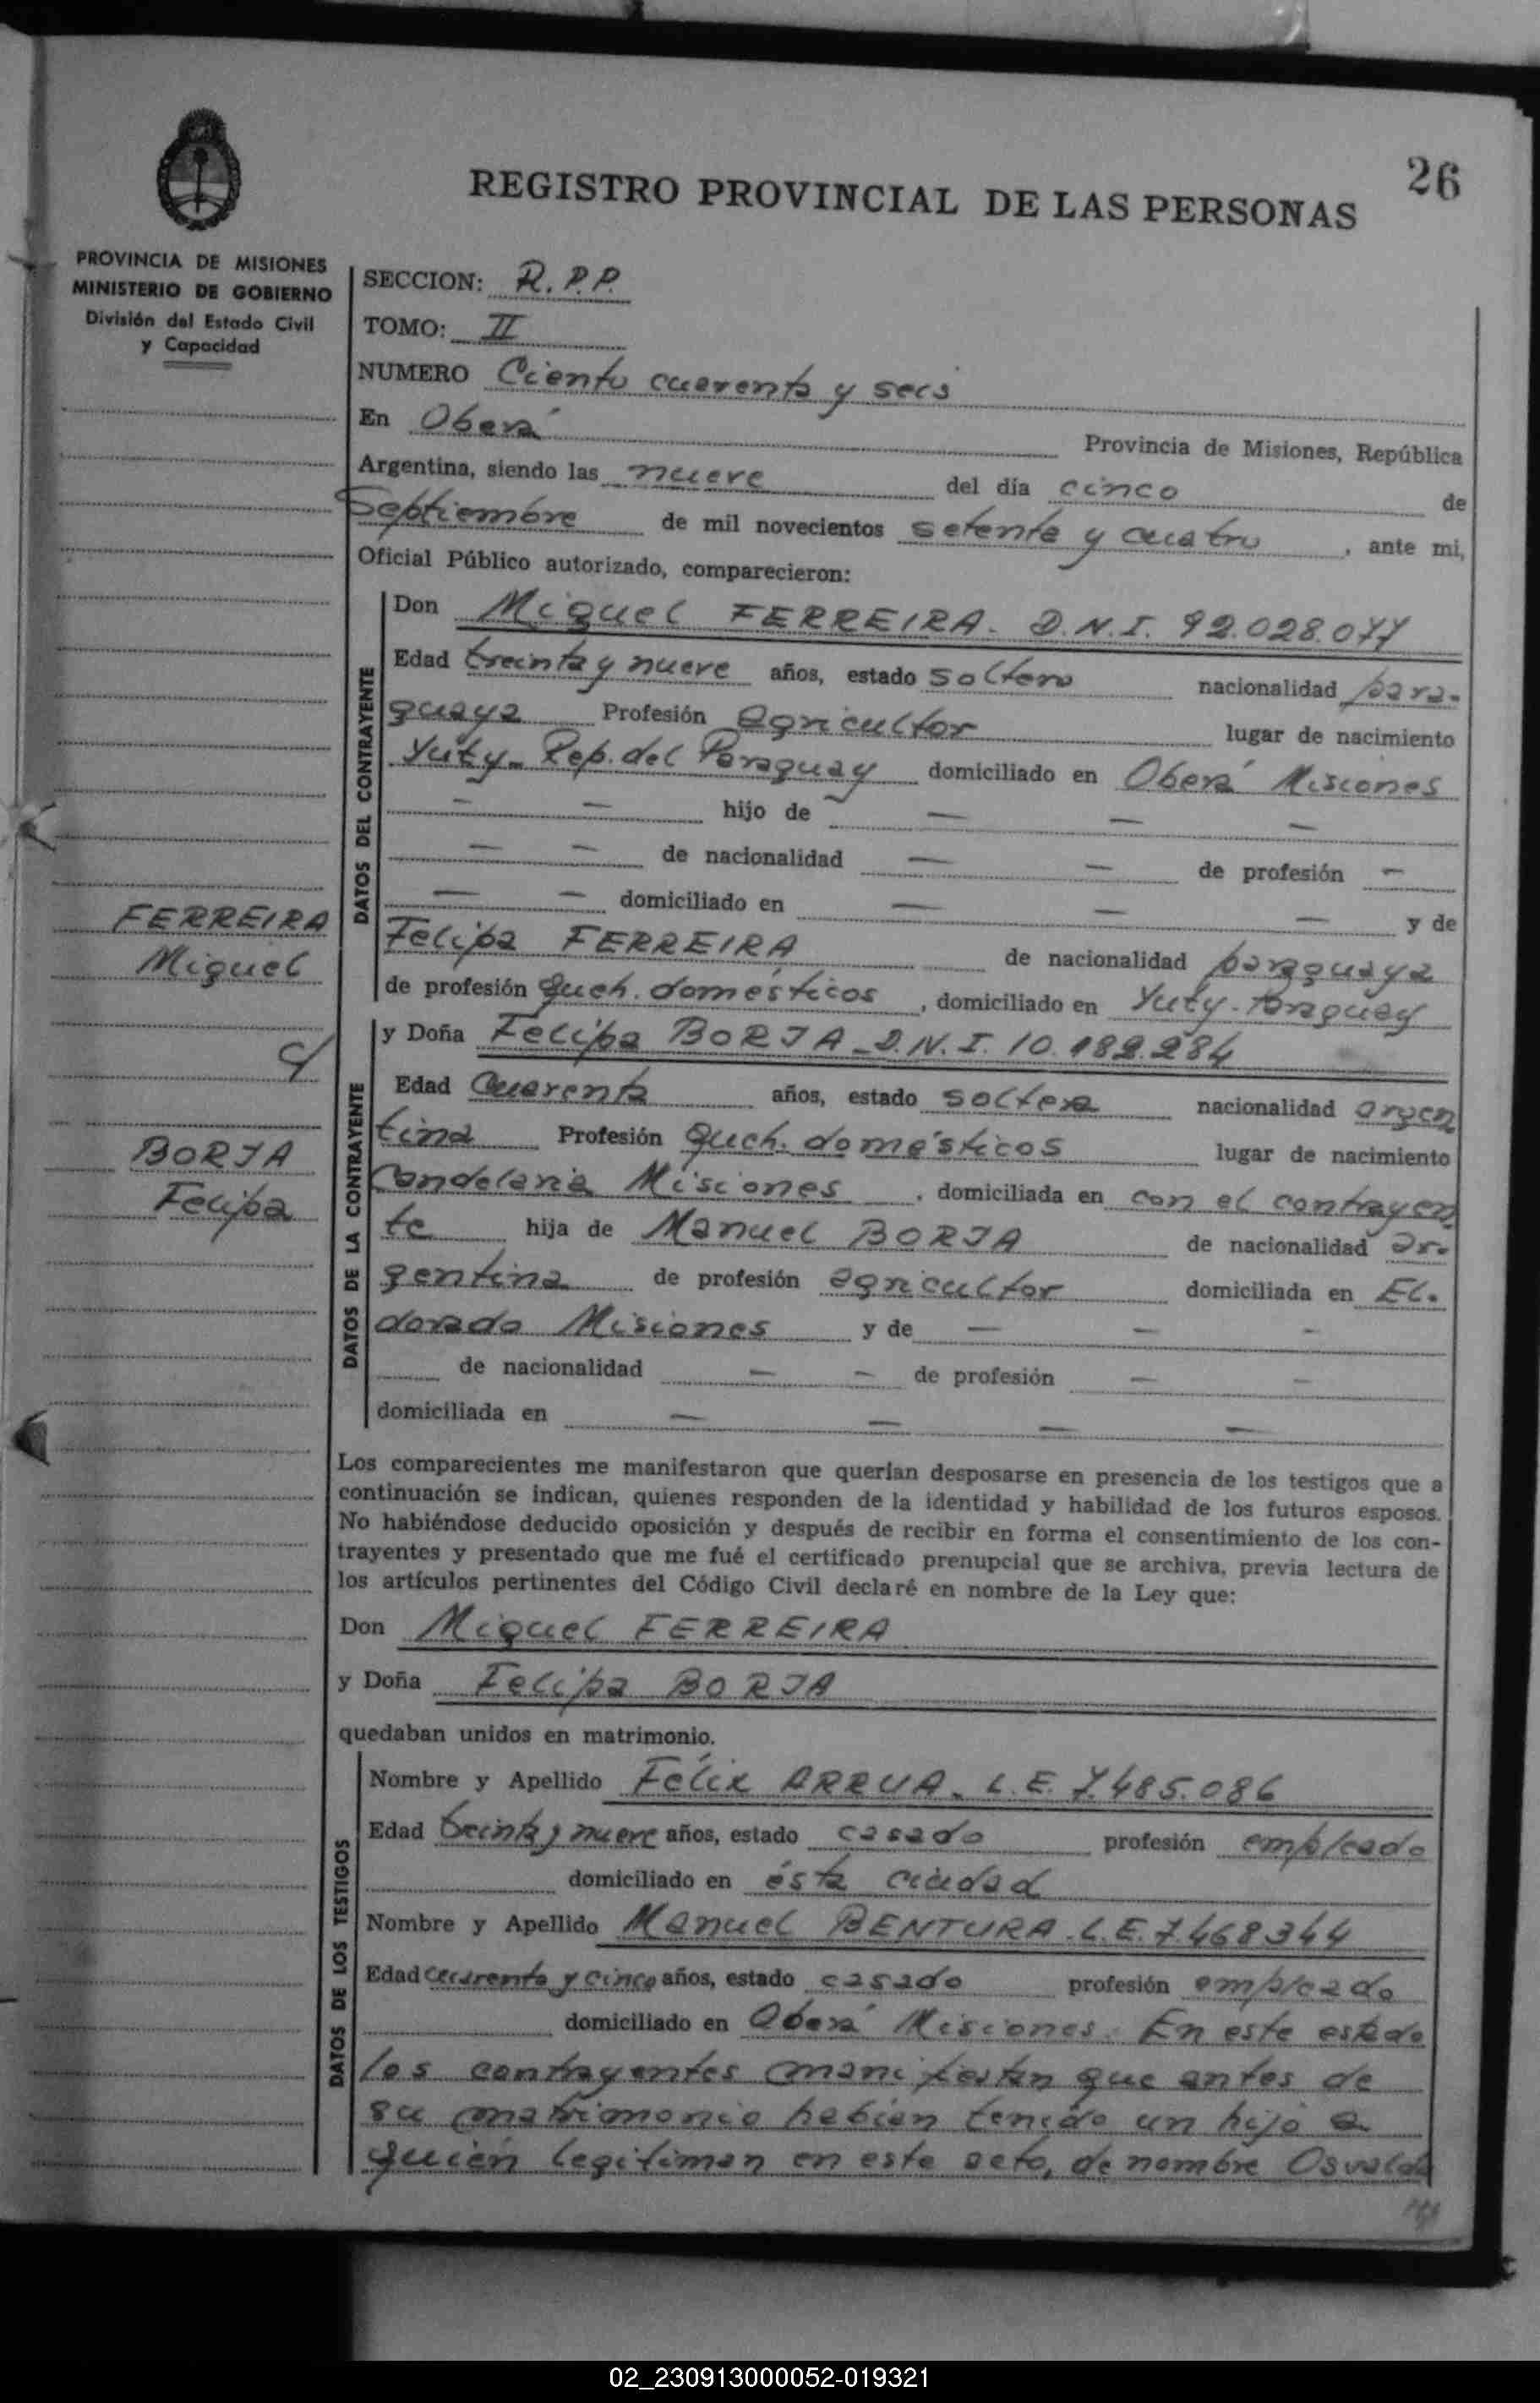 26
REGISTRO PROVINCIAL DE LAS PERSONAS
PROVINCIA DE MISIONES
MINISTERIO DE GOBIERNO
División del Estado Civil
y Capacidad
SECCION: R.P.P.
TOMO: II
NUMERO Ciento cuarenta y seis
En Oberá Provincia de Misiones, República
Argentina, siendo las nueve del día cinco de
Septiembre de mil novecientos setenta y cuatro, ante mi,
Oficial Público autorizado, comparecieron:
DATOS DEL CONTRAYENTE
Don Miguel FERREIRA - D.N.I. 92.028.077
Edad treinta y nueve años, estado soltero nacionalidad para-
guaya Profesión agricultor lugar de nacimiento
Yuty - Rep. del Paraguay domiciliado en Oberá Misiones
— — hijo de — — —
— — de nacionalidad — — de profesión —
— — domiciliado en — — — y de
Felipa FERREIRA de nacionalidad paraguaya
de profesión queh. domésticos, domiciliado en Yuty - Paraguay
FERREIRA
Miguel
c/
BORJA
Felipa
DATOS DE LA CONTRAYENTE
y Doña Felipa BORJA - D.N.I. 10.182.284
Edad cuarenta años, estado soltera nacionalidad argen
tina Profesión queh. domésticos lugar de nacimiento
Candelaria Misiones, domiciliada en con el contrayen
te hija de Manuel BORJA de nacionalidad ar-
gentina de profesión agricultor domiciliada en El-
dorado Misiones y de — — —
de nacionalidad — — de profesión — —
domiciliada en — — — —
Los comparecientes me manifestaron que querían desposarse en presencia de los testigos que a
continuación se indican, quienes responden de la identidad y habilidad de los futuros esposos.
No habiéndose deducido oposición y después de recibir en forma el consentimiento de los con-
trayentes y presentado que me fué el certificado prenupcial que se archiva, previa lectura de
los artículos pertinentes del Código Civil declaré en nombre de la Ley que:
Don Miguel FERREIRA
y Doña Felipa BORJA
quedaban unidos en matrimonio.
DATOS DE LOS TESTIGOS
Nombre y Apellido Félix ARRUA - L.E. 7.485.086
Edad treinta y nueve años, estado casado profesión empleado
domiciliado en ésta ciudad
Nombre y Apellido Manuel BENTURA - L.E. 7.468344
Edad cuarenta y cinco años, estado casado profesión empleado
domiciliado en Oberá Misiones. En este estado
los contrayentes manifiestan que antes de
su matrimonio habían tenido un hijo a
quién legitiman en este acto, de nombre Osvaldo
02_230913000052-019321